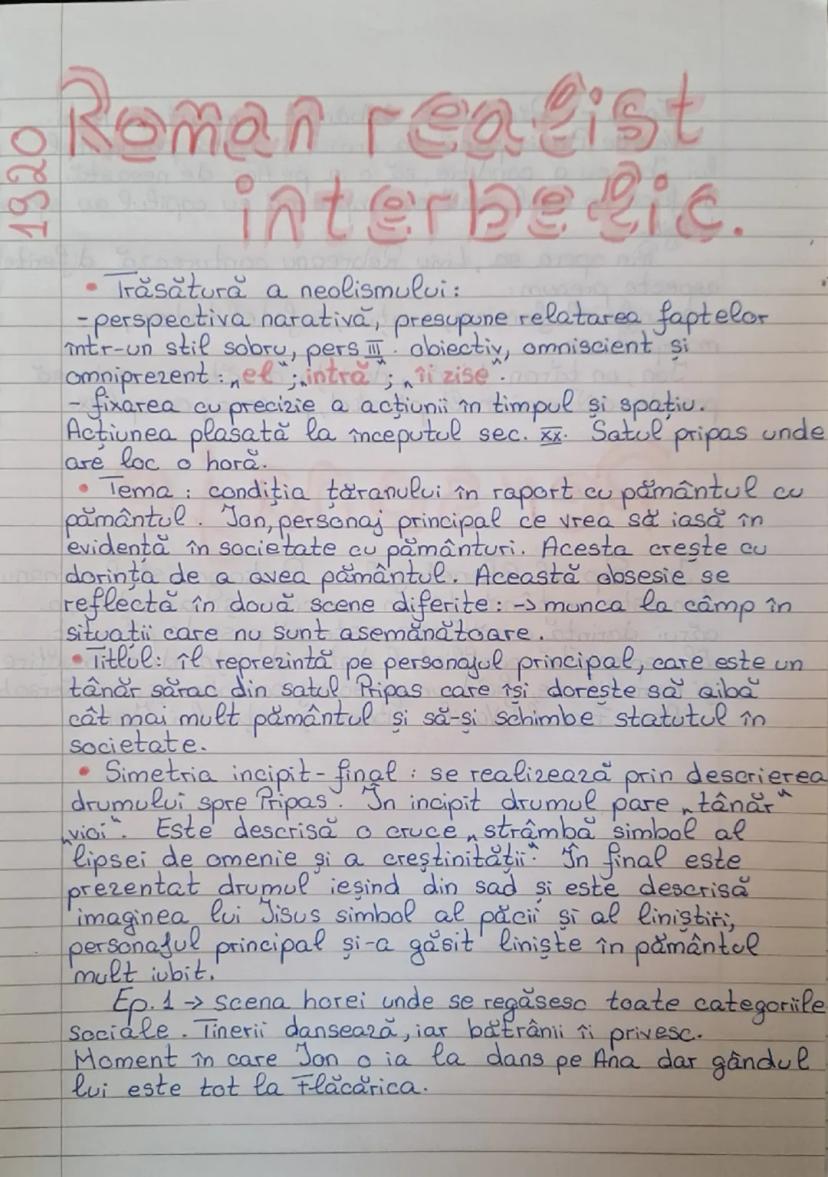 1920
Roman realist
interbelic.
• Trăsătură a neolismului:
-perspectiva narativă, presupune relatarea faptelor
într-un stil sobru, pers III. obiectiv, omniscient și
omniprezent: „el"; „intră"; „îi zise".
- fixarea cu precizie a acțiunii în timpul și spațiu.
Acțiunea plasată la începutul sec. XX. Satul pripas unde
are loc o horă.
• Tema: condiția țăranului în raport cu pământul cu
pământul. Ion, personaj principal ce vrea să iasă în
evidență în societate cu pământuri. Acesta crește cu
dorința de a avea pământul. Această obsesie se
reflectă în două scene diferite: -> munca la câmp în
situații care nu sunt asemănătoare.
• Titlul: îl reprezintă pe personajul principal, care este un
tânăr sărac din satul Pripas care își dorește să aibă
cât mai mult pământul și să-și schimbe statutul în
societate.
• Simetria incipit-final: se realizează prin descrierea
drumului spre Pripas. În incipit drumul pare „tânăr"
„vioi". Este descrisă o cruce „strâmbă simbol al
lipsei de omenie și a creștinității". În final este
prezentat drumul ieșind din sad și este descrisă
imaginea lui Iisus simbol al păcii și al liniștiri,
personajul principal și-a găsit liniște în pământul
mult iubit.
Ep. 1 -> scena horei unde se regăsesc toate categoriile
sociale. Tinerii dansează, iar bătrânii îi privesc.
Moment în care Ion o ia la dans pe Ana dar gândul
lui este tot la Flăcărica.